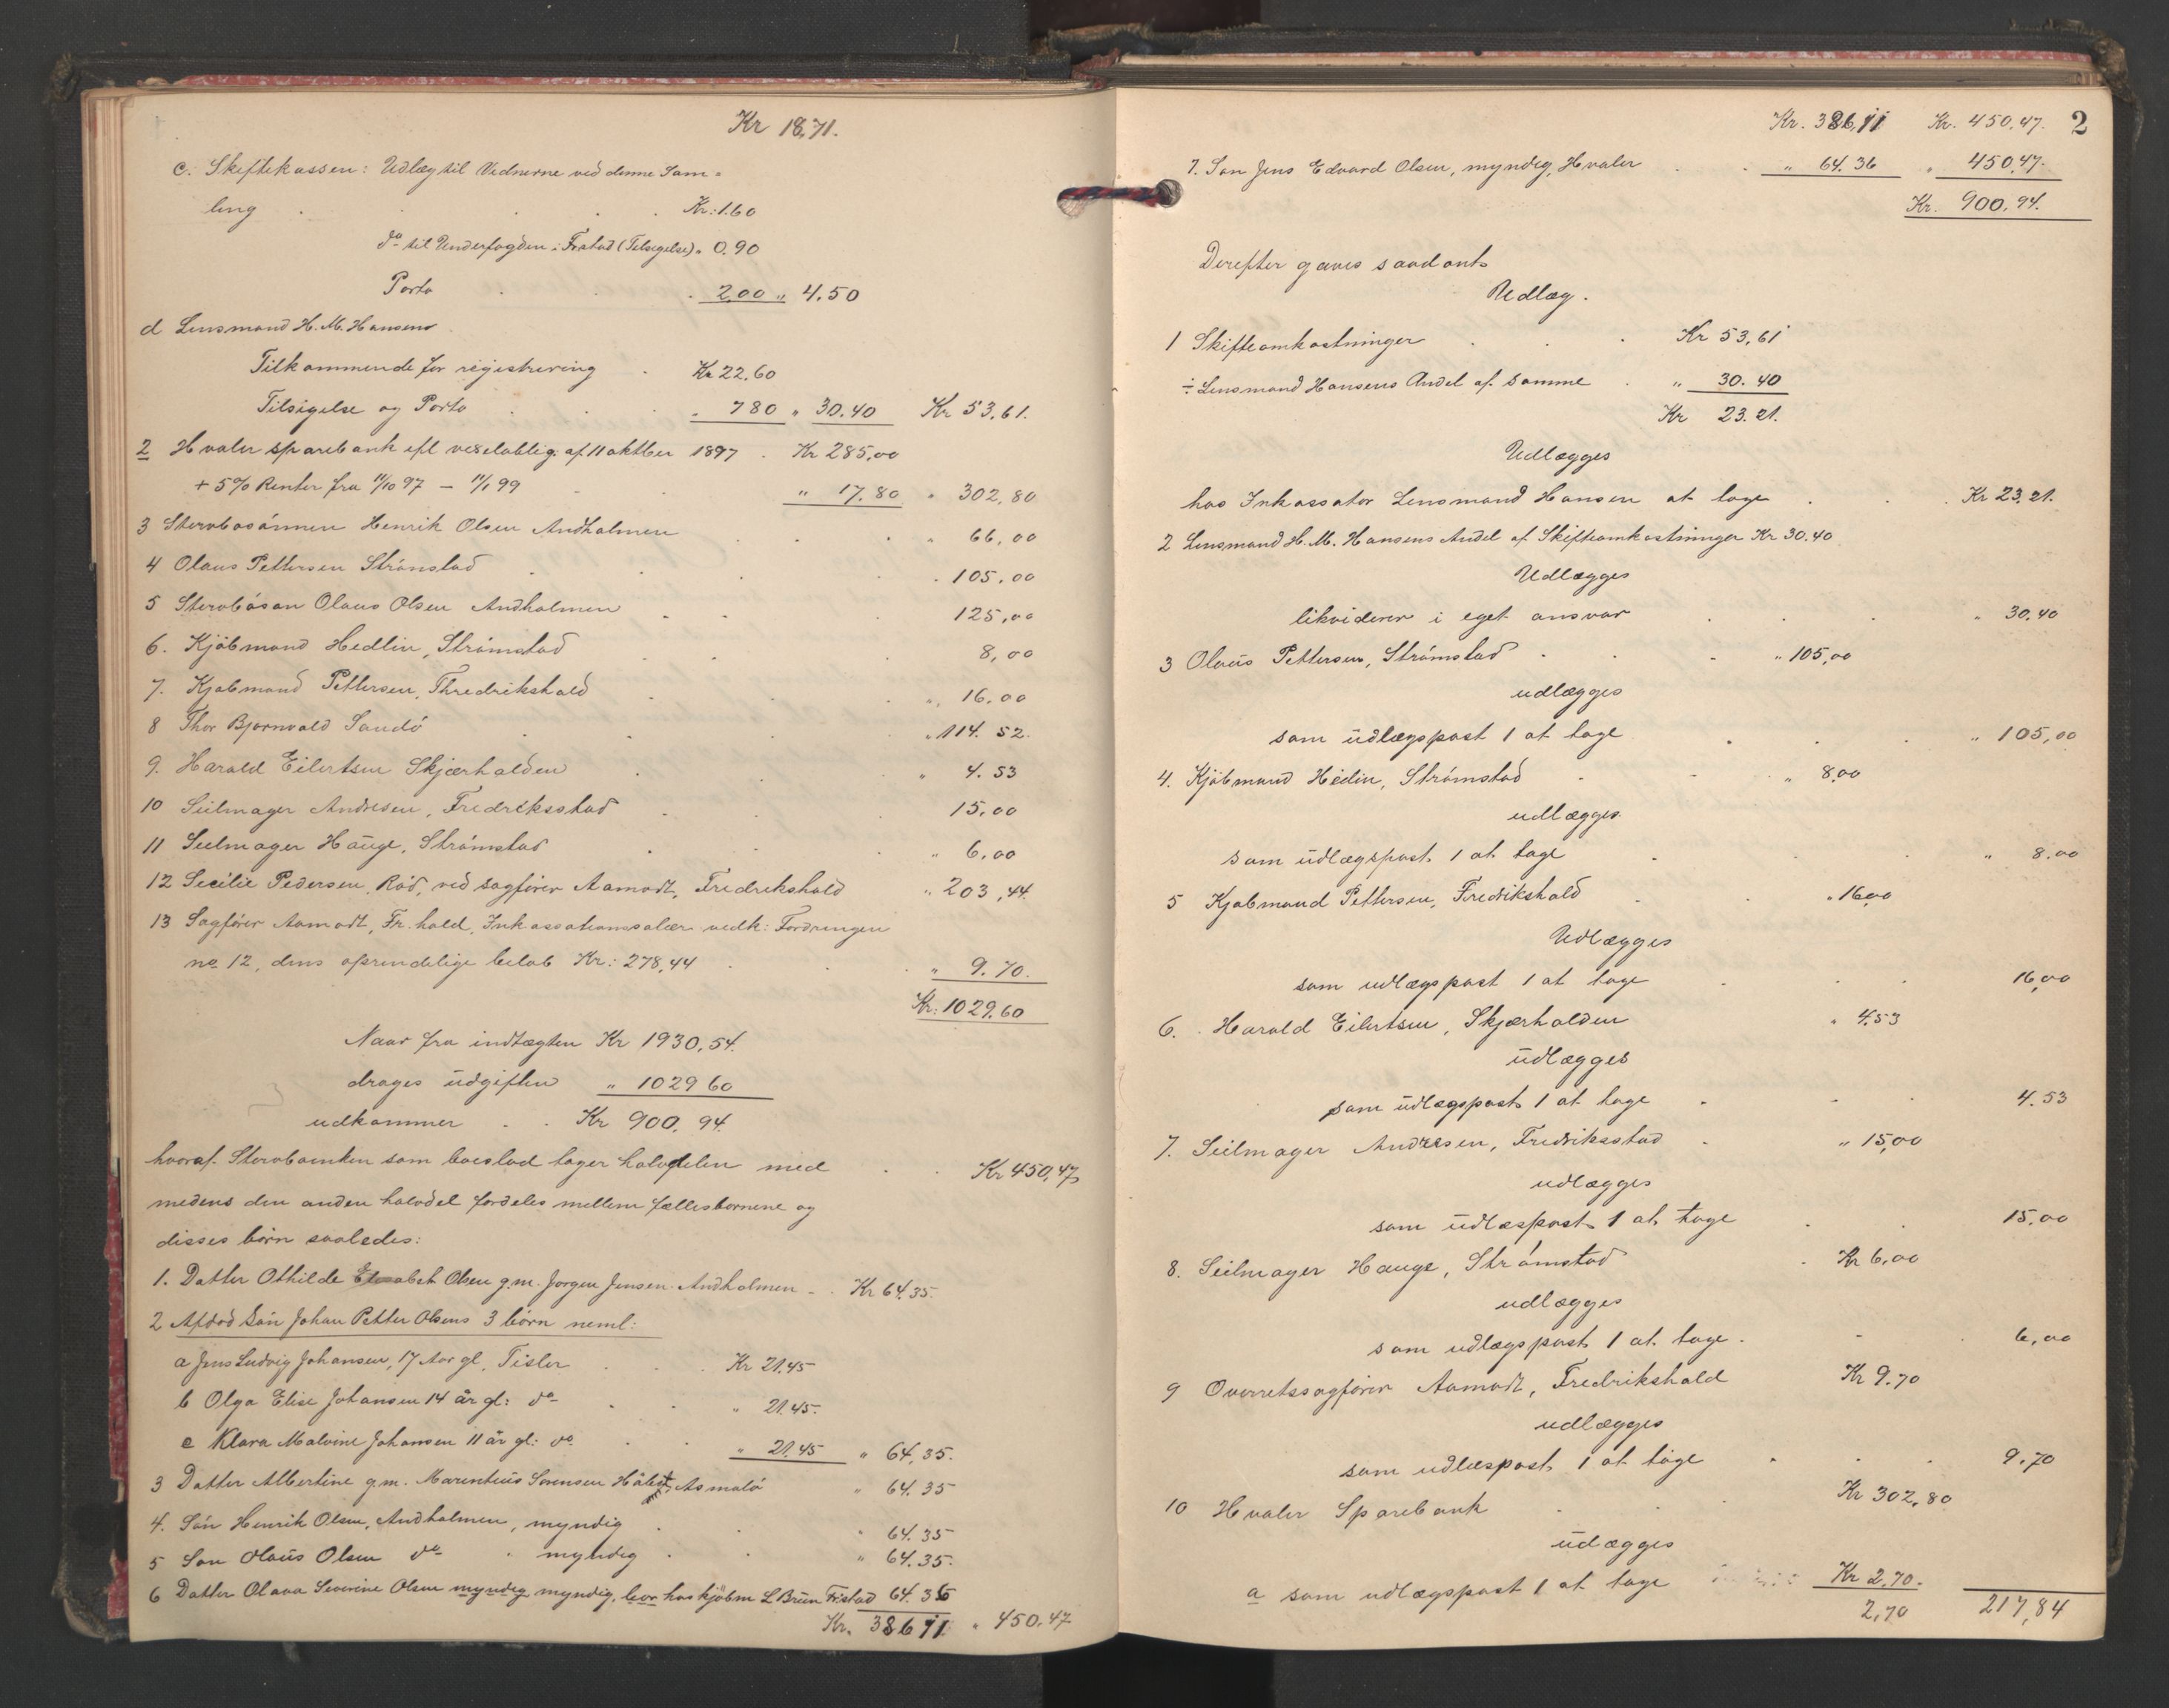 Kr 18,71.
c. Skiftekassen: Udlæg til Vidnerne ved denne Sam=
ling . . . Kr: 1.60
do til Underfogden i Frstad (Tilsigelse) " 0.90
Porto . . 2,00 " 4.50
d Lensmand H. M. Hansens
Tilkommende for registrering . Kr 22,60
Tilsigelse og Porto . . . " 780 " 30.40 Kr 53,61.
2 Hvaler sparebank efl vexelablig. af 11 oktber 1897 . Kr 285,00
+ 5% Renter fra 11/10 97 — 11/1 99 " 17.80 " 302,80
3 Stervbosönnen Henrik Olsen Andholmen . . . " 66,00
4 Olaus Pettersen Strömstad . . . . 105,00
5 Stervbösøn Olaus Olsen Andholmen . . . 125,00
6. Kjöbmand Hedlin, Strömstad . . . 8,00
7. Kjøbmand Pettersen, Fhredrikshald . . " 16,00
8 Thor Bjørnvald Sandö . . . " 114. 52.
9. Harald Eilertsen Skjærhalden . . " 4. 53
10 Seilmager Andresen, Fredriksstad . . 15,00
11 Seilmager Hauge, Strömstad . . " 6,00
12 Secilie Pedersen, Röd, ved sagförer Aamodt, Fredrikshald " 203,44.
13 Sagförer Aamodt, Fr. hald, Inkassationssalær vedk: Fordringen
no 12, dens oprindelige beløb Kr: 278,44 . . " 9.70.
Kr: 1029,60
Naar fra indtægten Kr 1930,54.
drages udgiften " 1029 60
udkommer . . Kr 900. 94.
hvoraf Stervboenken som boeslod tager halvdelen med . . Kr 450,47
medens den anden halvdel fordeles mellem fællesbørnene og
disses börn saaledes:
1. Datter Othilde Elisabet Olsen g.m. Jørgen Jensen Andholmen - . Kr 64.35.
2 Afdød Sön Johan Petter Olsens 3 börn neml:
a Jens Ludvig Johansen, 17 Aar gl, Tisler . . . Kr 21.45
b Olga Elise Johansen 14 år gl: do . . " 21.45.
c Klara Malvine Johansen 11 år gl: do . . " 21.45 " 64,35.
3 Datter Albertine g.m. Marentius Sørensen Asmalö " 64.35
4. Sön Henrik Olsen, Andholmen, myndig . . " 64.35
5 Søn Olaus Olsen do . myndig . . " 64.35.
6 Datter Olava Severine Olsen myndig myndig, bor hos kjöbm L Brün Frstad 64.36
Kr. 386 11 " 450.47
Kr. 386,11 Kr. 450,47. 2
7. Søn Jens Edvard Olsen, myndig, Hvaler . . " 64.36 " 450,47.
Kr. 900,94.
Derefter gaves saadant
Udlæg.
1 Skifteomkostninger . . . Kr 53,61
÷ Lensmand Hansens Andel af samme . " 30.40
Kr 23.21.
Udlægges
hos Inkassator Lensmand Hansen at tage . . . Kr 23,21.
2 Lensmand H. M. Hansens Andel af Skifteomkostninger Kr 30.40
Udlægges
likviderer i eget ansvar . . . " 30,40
3 Olaüs Pettersen, Strömstad . . . " 105,00
udlægges
som üdlægspost 1 at tage . . . " 105,00
4. Kjöbmand Hedin, Strömstad . . " 8,00
udlægges
som üdlægspost 1 at tage . . " 8,00
5 Kjøbmand Pettersen, Fredrikshald . . " 16,00
Udlægges
som udlægspost 1 at tage . . . 16,00
6. . Harald Eilertsen, Skjærhalden . " 4.53
üdlægges
som üdlægspost 1 at tage . . . 4.53
7. Seilmager Andresen, Fredriksstad . " 15,00
udlægges
som üdlæspost 1 at tage . . 15,00
8. Seilmager Hauge, Strömstad . Kr 6,00
udlægges
som udlægspost 1 at tage . - . 6,00
9 Overretssagförer Aamodt, Fredrikshald Kr 9.70
udlægges
som udlæspost 1 at tage . . . 9.70
10 Hvaler Sparebank . . . Kr 302,80
üdægges
a som udlægspost 1 at tage Kr 2,70.
2,70 217,84